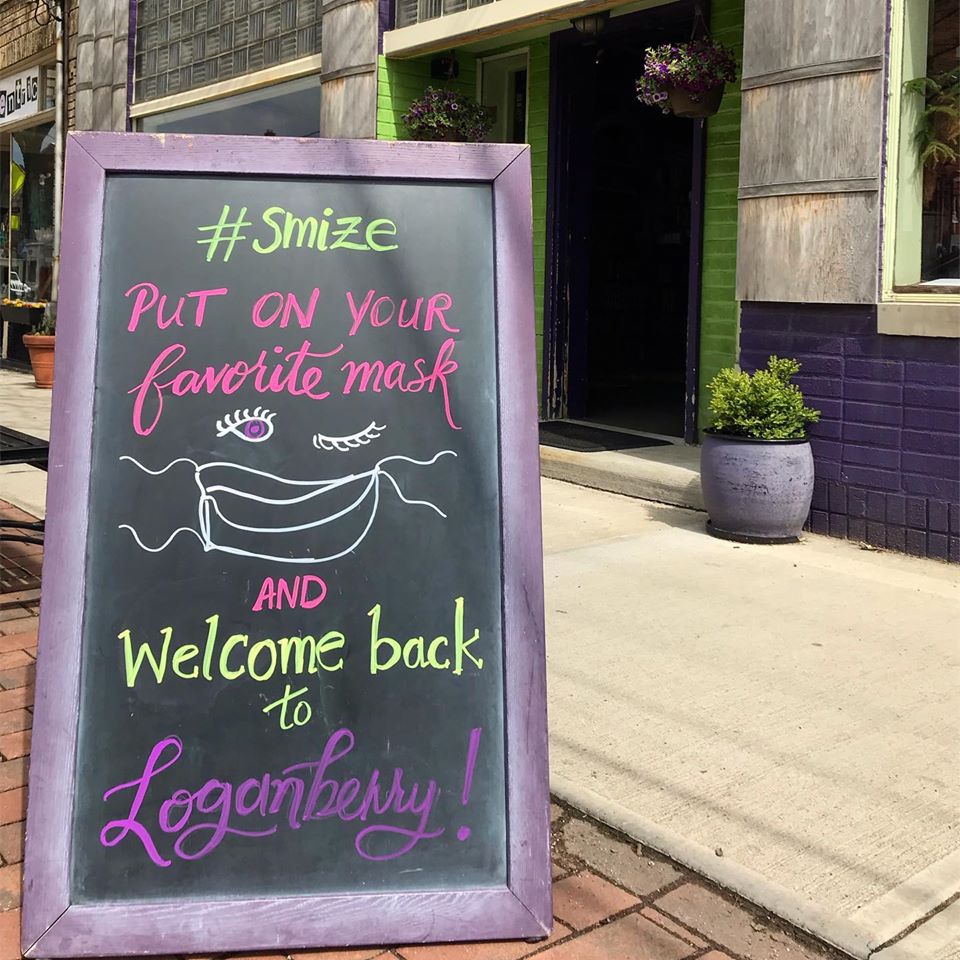 entric
#Smize
PUT ON YOUR
favorite mask
AND
Welcome back
to
Loganberry!